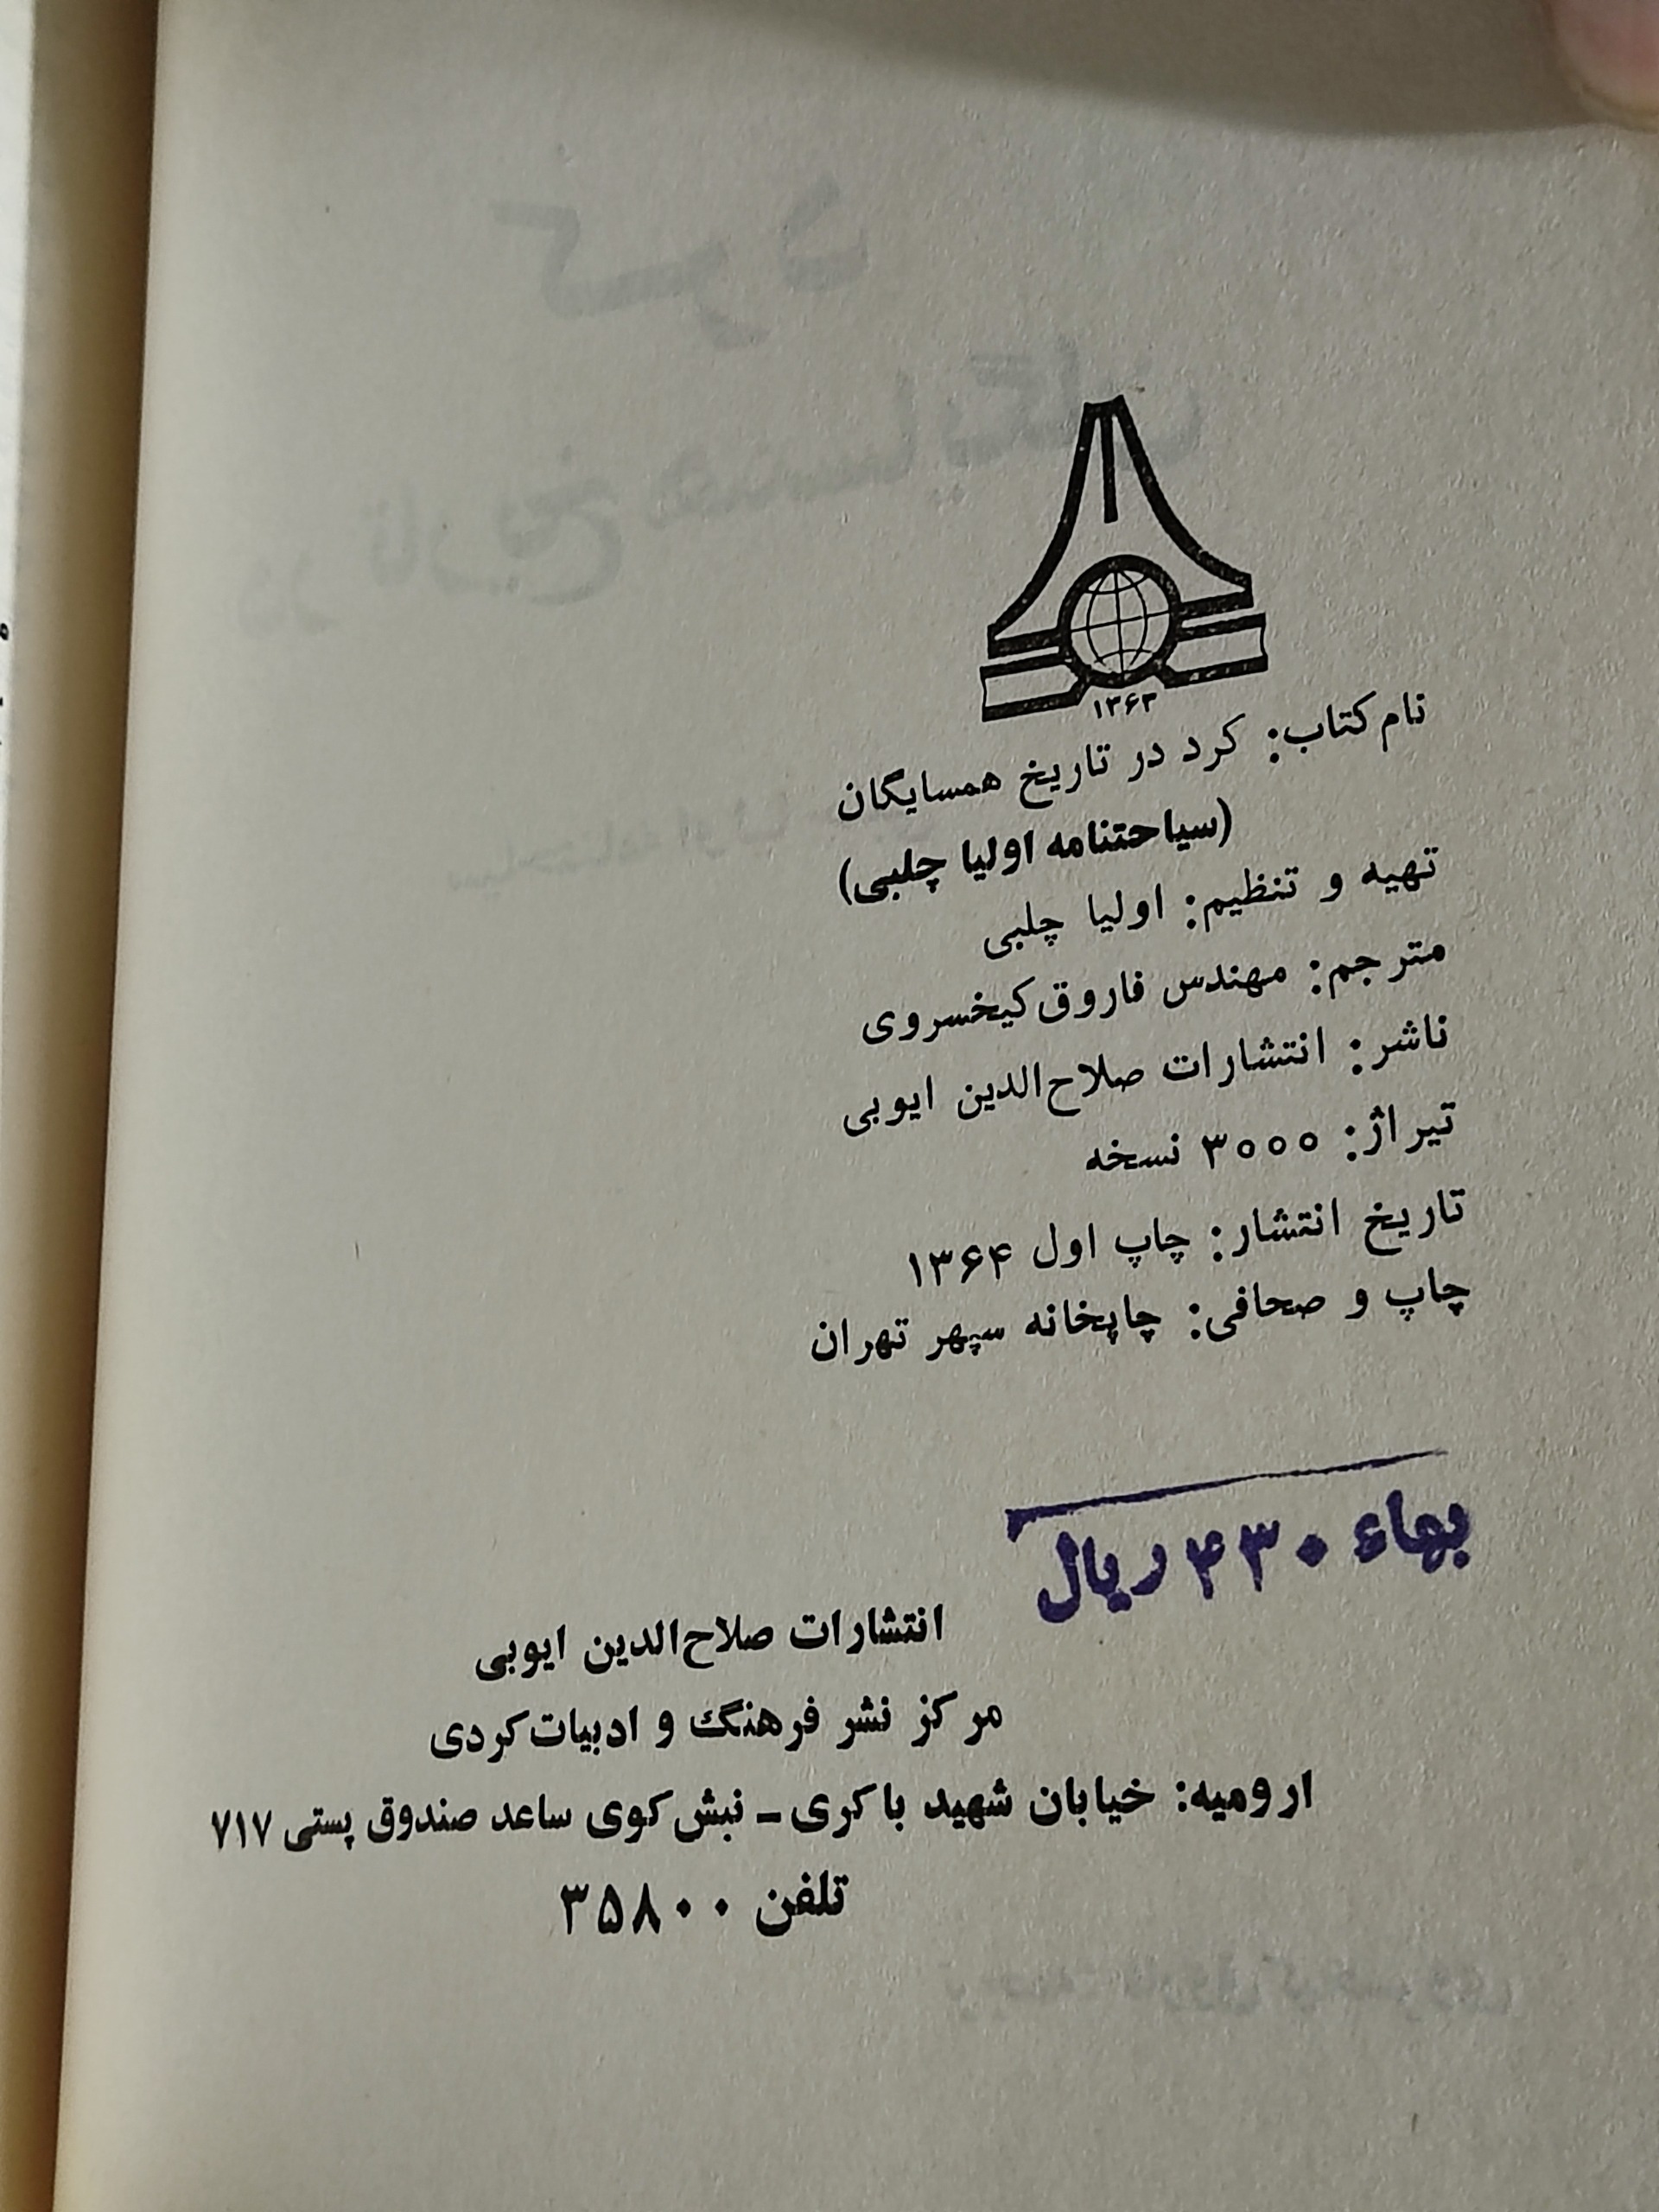 ۱۳۶۳
نام کتاب: کرد در تاریخ همسایگان
(سیاحتنامه اولیا چلبی)
تهیه و تنظیم: اولیا چلبی
مترجم: مهندس فاروق کیخسروی
ناشر: انتشارات صلاح‌الدین ایوبی
تیراژ: ۳۰۰۰ نسخه
تاریخ انتشار: چاپ اول ۱۳۶۴
چاپ و صحافی: چاپخانه سپهر تهران
بهاء ۴۳۰ ریال
انتشارات صلاح‌الدین ایوبی
مرکز نشر فرهنگ و ادبیات کردی
ارومیه: خیابان شهید باکری ـ نبش کوی ساعد صندوق پستی ۷۱۷
تلفن ۳۵۸۰۰